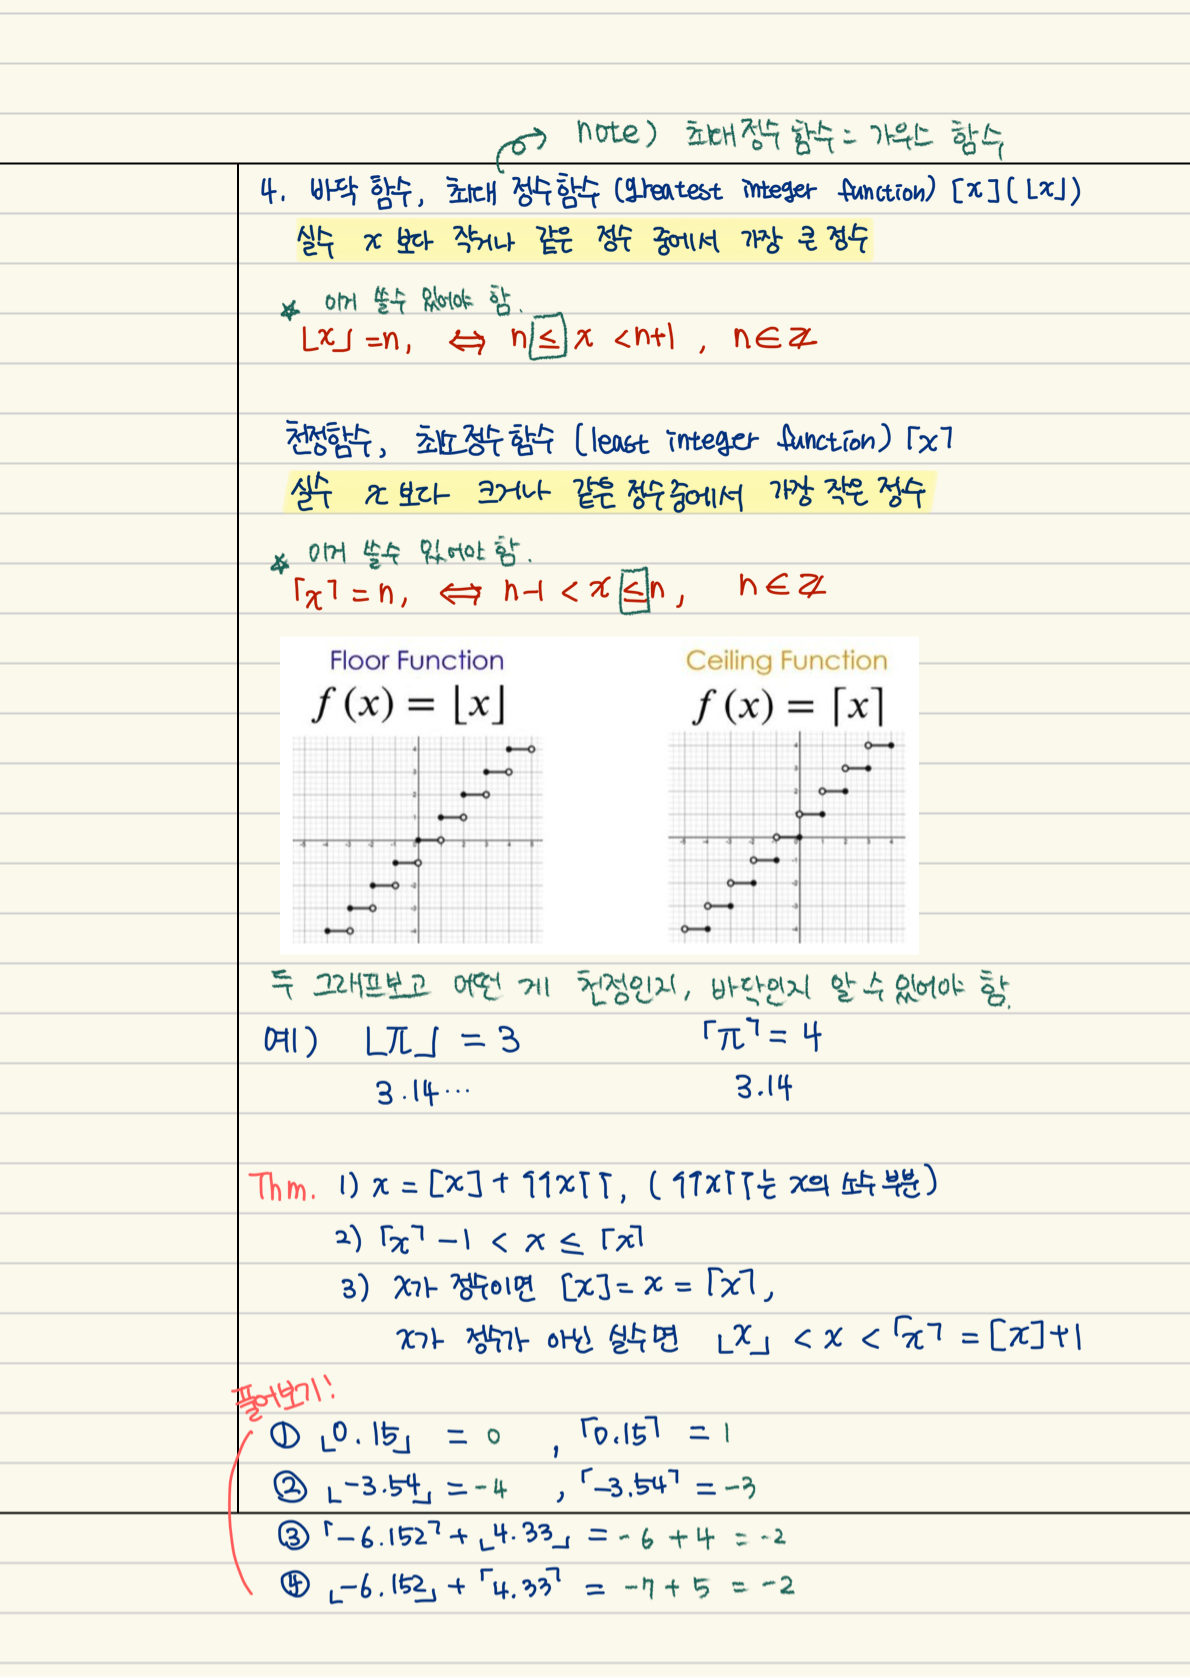 note) 최대정수 함수 = 가우스 함수
4. 바닥 함수, 최대 정수함수 (greatest integer function) [x] (⌊x⌋)
실수 x 보다 작거나 같은 정수 중에서 가장 큰 정수
★ 이거 쓸수 있어야 함.
⌊x⌋ = n, ⇔ n ≤ x < n+1, n∈ℤ
천정함수, 최소정수함수 (least integer function) ⌈x⌉
실수 x 보다 크거나 같은 정수중에서 가장 작은 정수
★ 이거 쓸수 있어야 함.
⌈x⌉ = n, ⇔ n-1 < x ≤ n, n∈ℤ
Floor Function Ceiling Function
f(x) = ⌊x⌋ f(x) = ⌈x⌉
두 그래프보고 어떤 게 천정인지, 바닥인지 알 수 있어야 함.
예) ⌊π⌋ = 3 ⌈π⌉ = 4
3.14··· 3.14
Thm. 1) x = [x] + ↿↿x↾↾, (↿↿x↾↾는 x의 소수 부분)
2) ⌈x⌉ - 1 < x ≤ ⌈x⌉
3) x가 정수이면 [x] = x = ⌈x⌉,
x가 정수가 아닌 실수면 ⌊x⌋ < x < ⌈x⌉ = [x]+1
풀어보기!
① ⌊0.15⌋ = 0 , ⌈0.15⌉ = 1
② ⌊-3.54⌋ = -4 , ⌈-3.54⌉ = -3
③ ⌈-6.152⌉ + ⌊4.33⌋ = -6 + 4 = -2
④ ⌊-6.152⌋ + ⌈4.33⌉ = -7 + 5 = -2